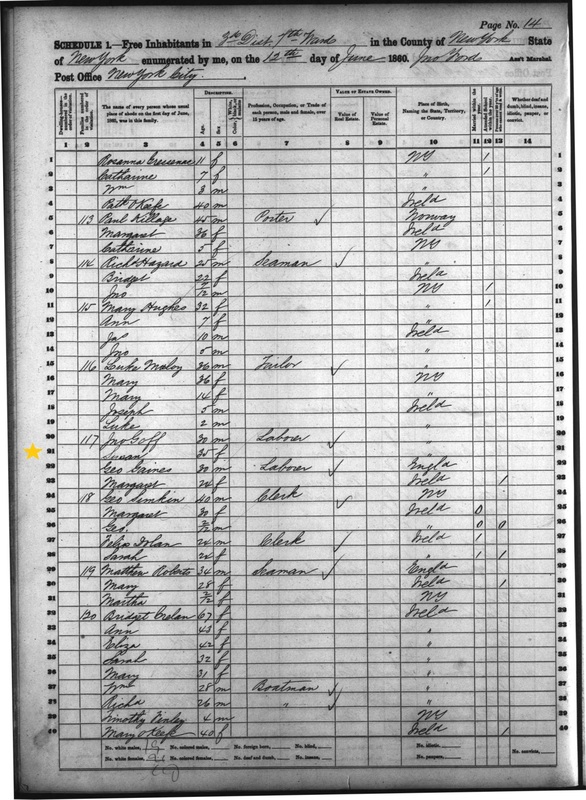 Page No. 14
SCHEDULE 1.—Free Inhabitants in 3d Dist. 7th Ward in the County of New York State
of New York enumerated by me, on the 12th day of June 1860. Ass't Marshal.
Post Office New York City.
DESCRIPTION.
VALUE OF ESTATE OWNED.
The name of every person whose usual place of abode on the first day of June, 1860, was in this family.
Age.
Sex.
Profession, Occupation, or Trade of each person, male and female, over 15 years of age.
Value of Real Estate.
Value of Personal Estate.
Place of Birth, Naming the State, Territory, or Country.
Whether deaf and dumb, blind, insane, idiotic, pauper, or convict.
1 2 3 4 5 6 7 8 9 10 11 12 13 14
1 Rosanna 11 f NY 1
2 Catharine 7 f " 1
3 Wm 3 m "
4 Patk O Keefe 40 m Ireld
5 113 Paul Killage 45 m Porter Norway
6 Margaret 36 f Ireld
7 Catherine 5 f NY
8 114 Richd Hazard 25 m Seaman "
9 Bridget 22 f Ireld
10 Jno /12 m NY 1
11 115 Mary Hughes 32 f " 1
12 Ann 7 f "
13 Jas 10 m Ireld
14 Jno 5 m "
15 116 Luke Maloy 36 m Tailor "
16 Mary 36 f NY
17 Mary 14 f "
18 Joseph 5 m Ireld
19 Luke 2 m "
20 117 Jno Goff 30 m Laborer "
21 Susan 35 f "
22 Geo Gaines 30 m Laborer Engld
23 Margaret 24 f Ireld 1
24 118 Geo Simkin 40 m Clerk NY
25 Margaret 30 f Ireld 0
26 Geo. /12 m " 0 0
27 Felix Dolan 24 m Clerk Ireld 1
28 Sarah 24 f " 1 1
29 119 Matthew Roberts 34 m Seaman Engld
30 Mary 28 f Ireld 1
31 Martha /12 f NY
32 120 Bridget Crelan 67 f Ireld
33 Ann 43 f "
34 Eliza 42 f "
35 Sarah 32 f "
36 Mary 31 f "
37 Wm 28 m Boatman "
38 Richd 26 m " "
39 Timothy Finley 4 m NY
40 Mary O Keefe 40 f Ireld 1
No. white males, 19 No. colored males, No. foreign born, No. blind, No. idiotic, No. convicts,
No. white females, 21 No. colored females, No. deaf and dumb, No. insane, No. paupers,